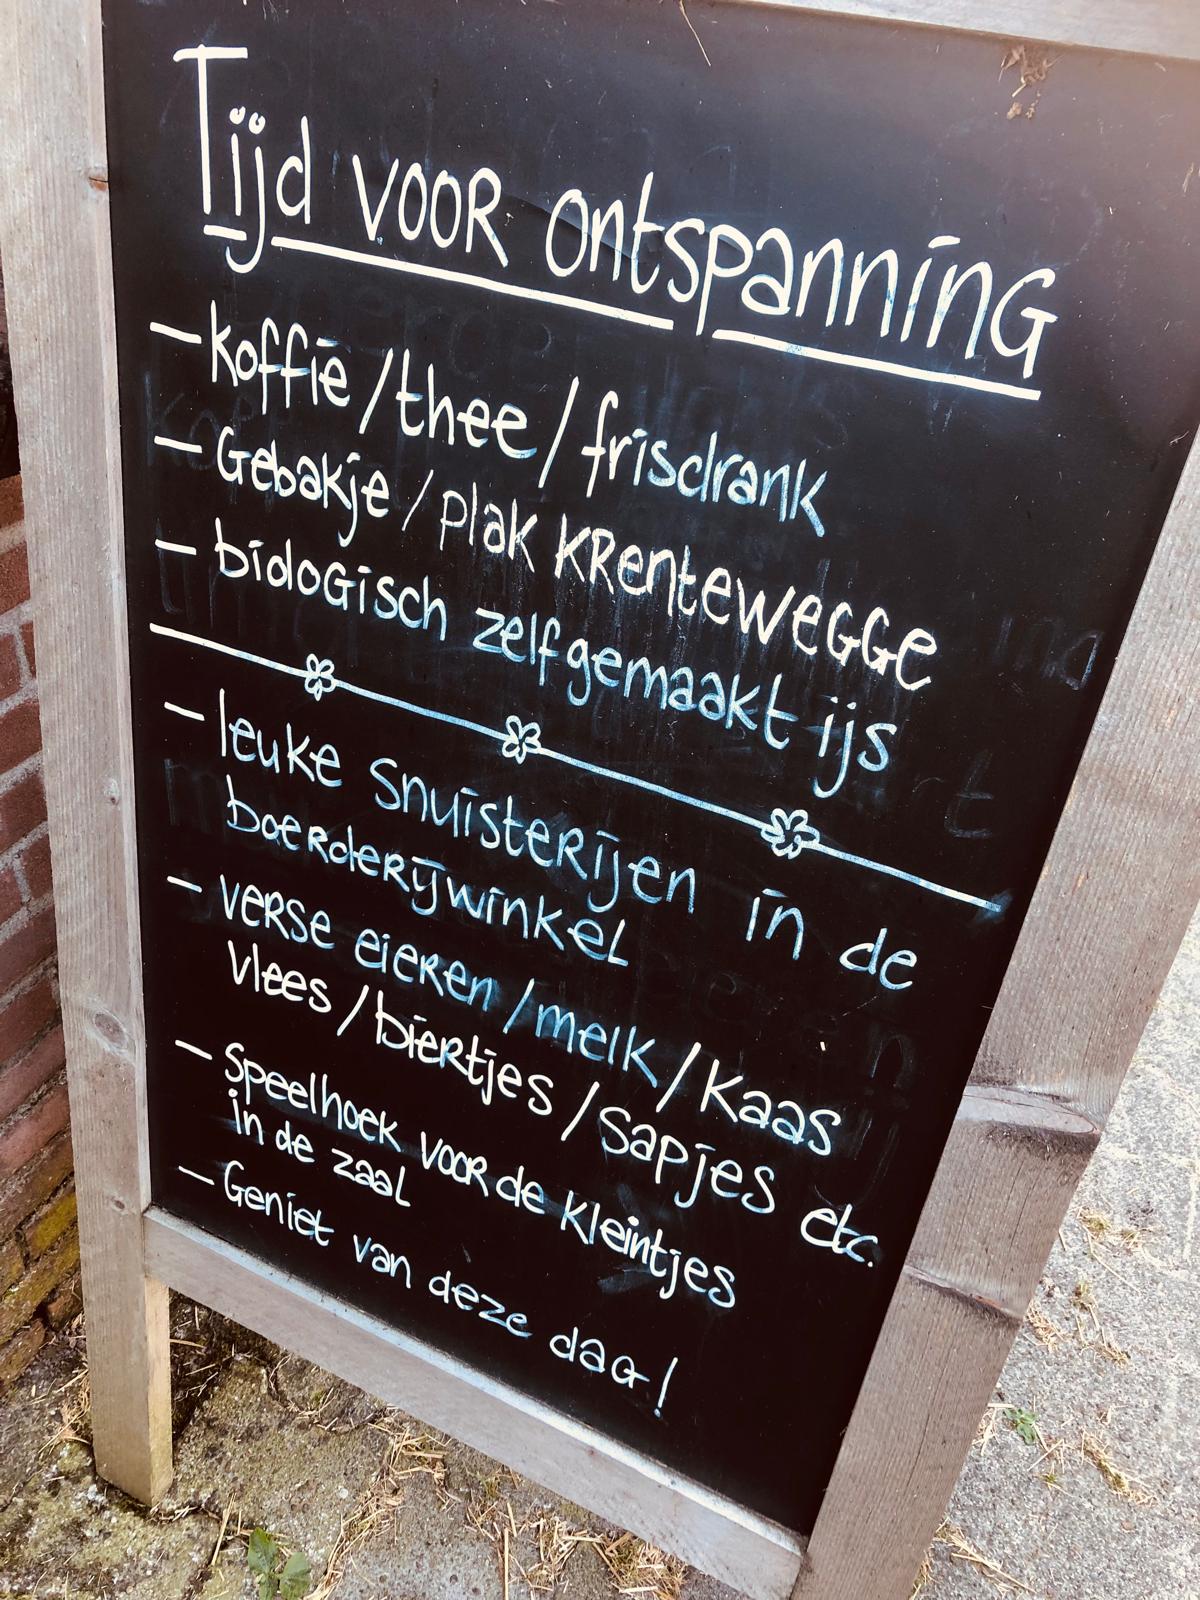 Tijd voor ontspanning
- koffie / thee / frisdrank
- Gebakje / plak Krentewegge
- biologisch zelfgemaakt ijs
- leuke snuisterijen in de
boerderijwinkel
- verse eieren / melk / Kaas
vlees / biertjes / sapjes etc.
- Speelhoek voor de kleintjes
in de zaal
- Geniet van deze dag!